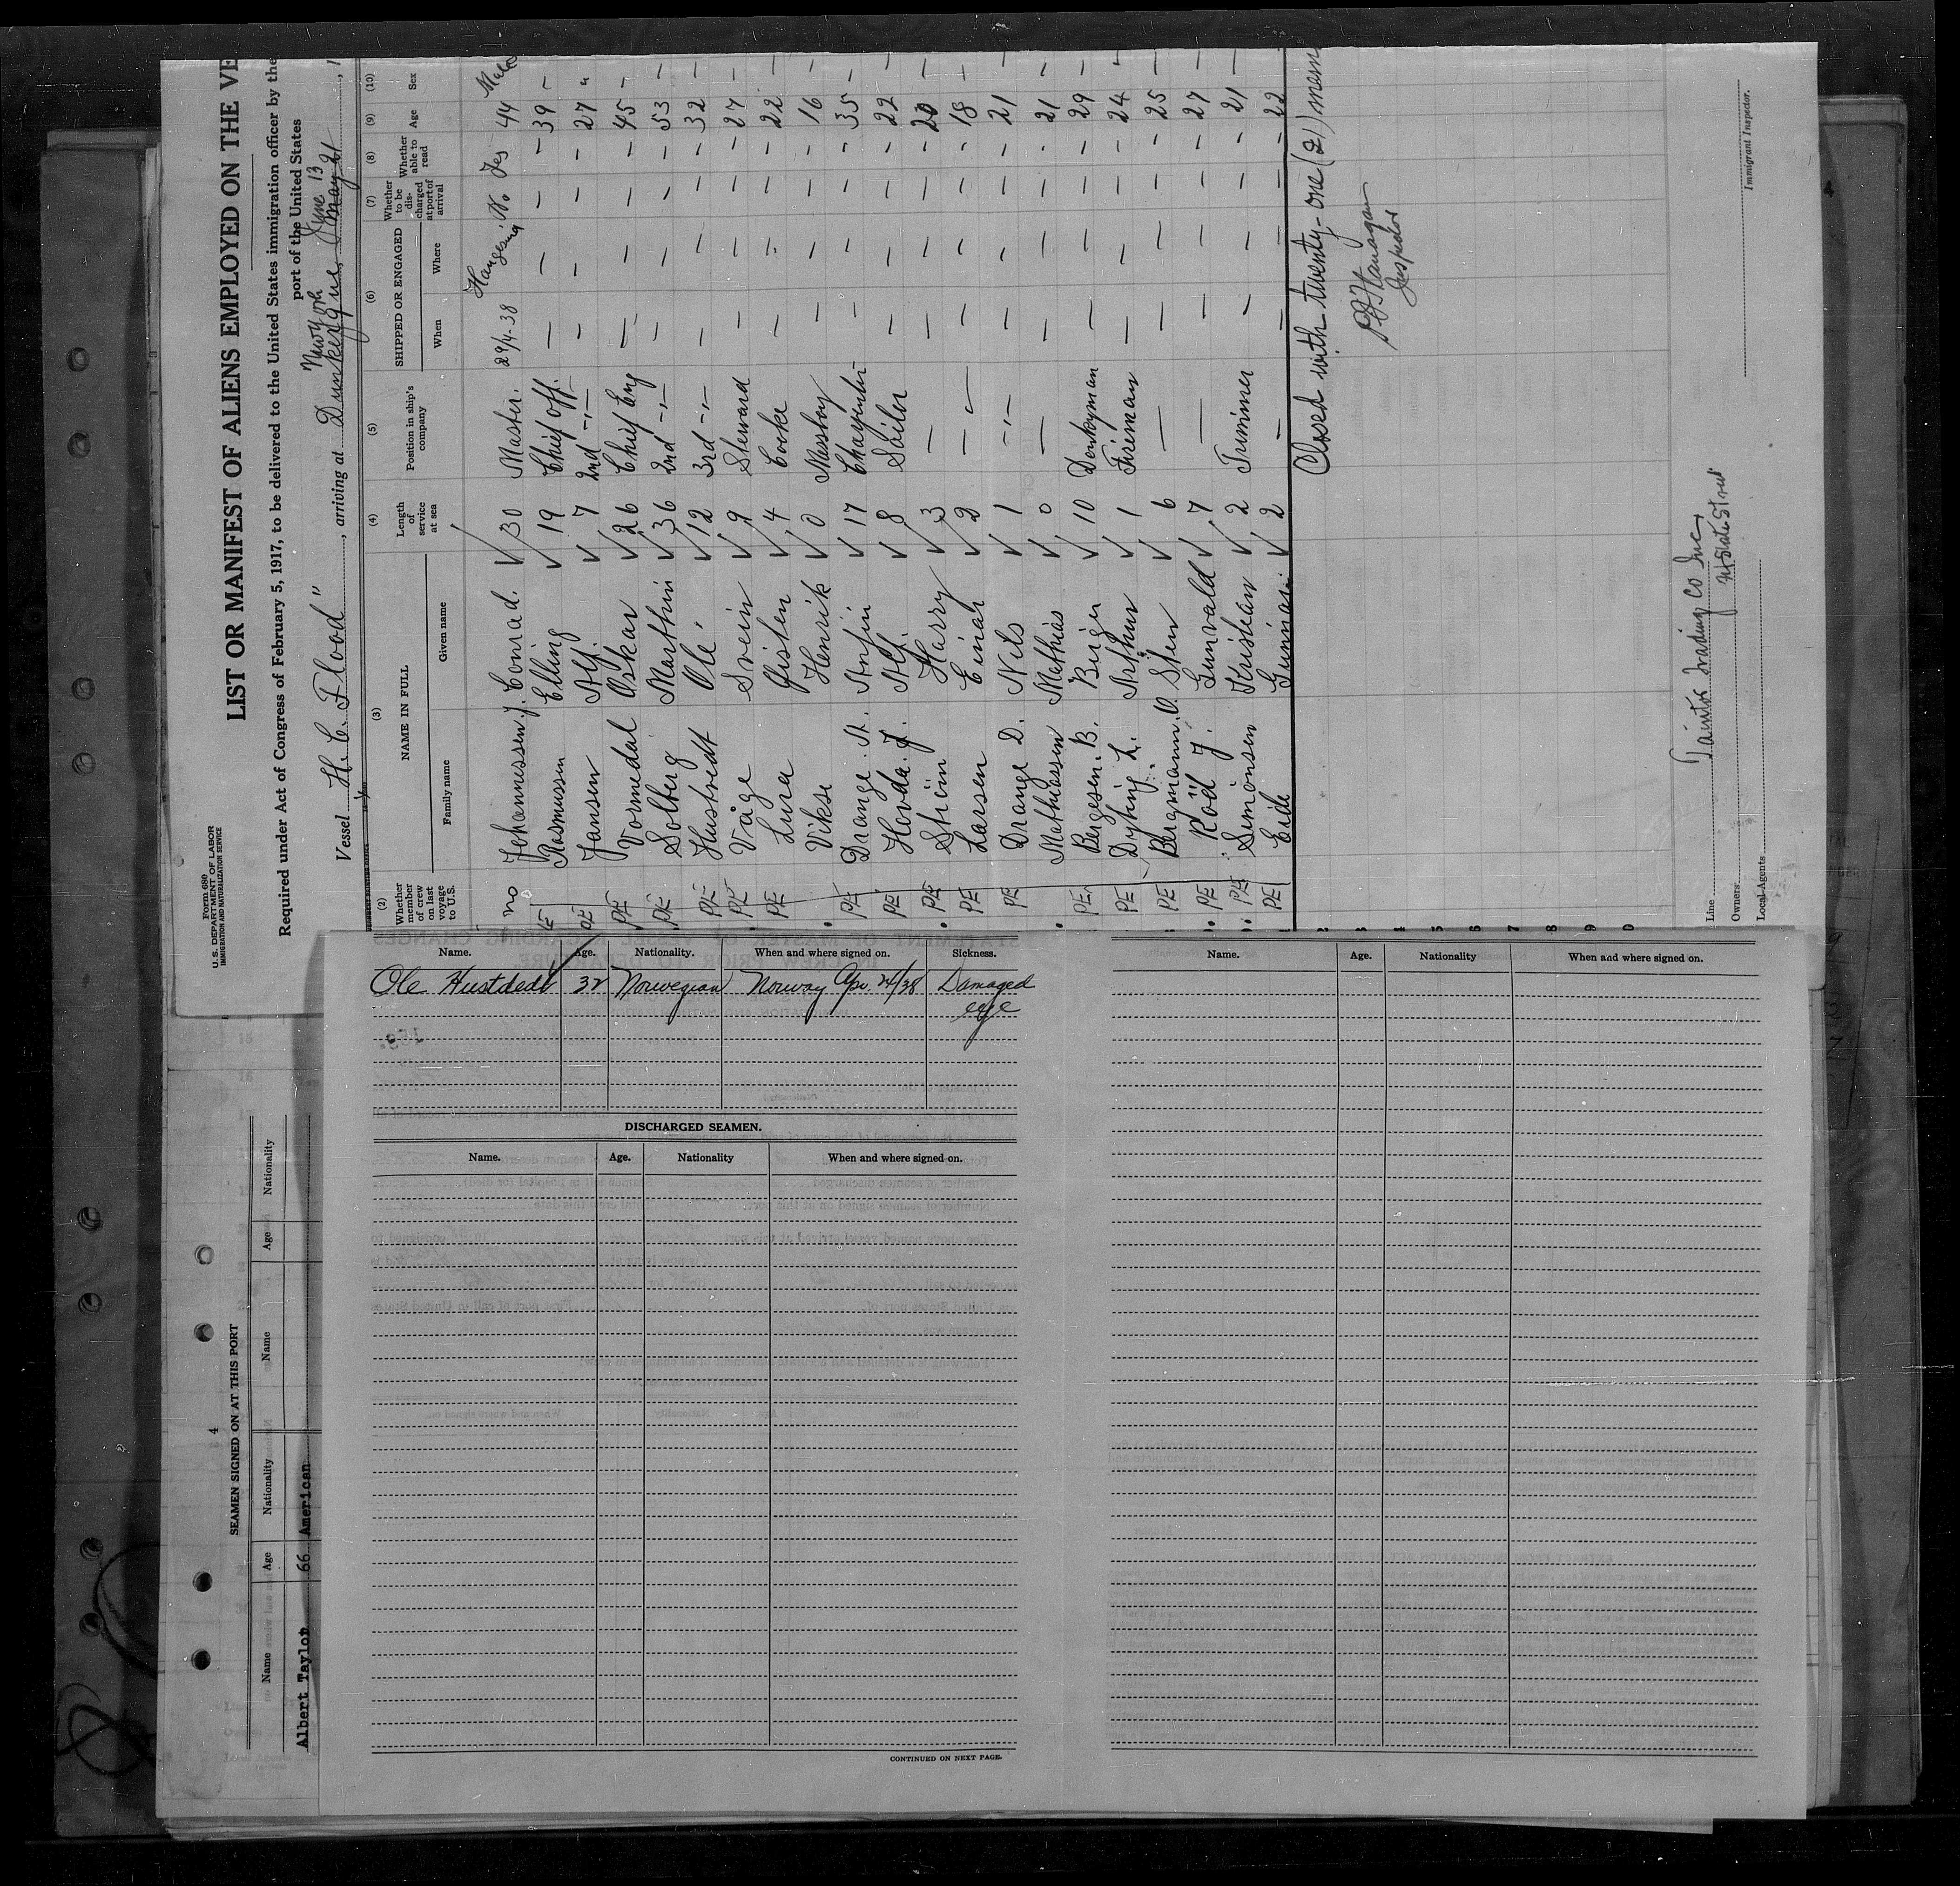 Form 680
U. S. DEPARTMENT OF LABOR
IMMIGRATION AND NATURALIZATION SERVICE
LIST OR MANIFEST OF ALIENS EMPLOYED ON THE VE
Required under Act of Congress of February 5, 1917, to be delivered to the United States immigration officer by the
port of the United States
Vessel H. C. Flood", arriving at Dunkerque, May 21, 1
New York June 13
(2) (3) (4) (5) (6) (7) (8) (9) (10)
Whether member of crew on last voyage to U.S.
NAME IN FULL
Family name Given name
Length of service at sea
Position in ship's company
SHIPPED OR ENGAGED
When Where
Whether to be discharged at port of arrival
Whether able to read
Age
Sex
no Johannessen J. Conrad. 30 Master. 29/4-38 Haugesund No Yes 44 Male
PE Rasmussen Elling 19 Chief Off. — — — — 39 —
PE Jansen Alf. 7 2nd -"- — — — — 27 "
PE Vormedal Oskar 26 Chief Eng — — — — 45 —
PE Solberg Marthin 36 2nd -"- — — — — 53 —
PE Hustvedt Ole 12 3rd -"- — — — — 32 —
PE Våge Svein 9 Steward — — — — 27 —
PE Lura Gisten 4 Cooke — — — — 22 —
Vikse Henrik 0 Messboy — — — — 16 —
PE Drange. A. Arnfin 17 Charpentir — — — — 35 —
PE Hovda. J. Alf. 8 Sailor — — — — 22 —
PE Ström Harry 3 — — — — — 20 —
PE Larsen Einar 2 — — — — — 18 —
PE Drange D. Nils 1 -"- — — — — 21 —
Mathiassen Mathias 0 — — — — — 21 —
PE Bergesen. B. Birger 10 Donkeyman — — — — 29 —
PE Dyring L. Arthur 1 Fireman — — — — 24 —
PE Bergmann. O. Sten 6 — — — — — 25 —
PE Röd J. Gunvald 7 — — — — — 27 —
PE Simonsen Kristian 2 Trimmer — — — — 21 —
PE Eide Gunnar 2 — — — — — 22
Closed with twenty-one (21) mem
P F Flanagan
Inspector
Line Taintor Trading Co Inc,
Owners
State Street
Local Agents
Immigrant Inspector.
Name. Age. Nationality. When and where signed on. Sickness.
Ole Hustdedt 32 Norwegian Norway Apr. 24/38 Damaged
eye
DISCHARGED SEAMEN.
Name. Age. Nationality When and where signed on.
CONTINUED ON NEXT PAGE.
Name. Age. Nationality When and where signed on.
4
SEAMEN SIGNED ON AT THIS PORT
Name Age Nationality Name Age Nationality
Albert Taylor 66 American